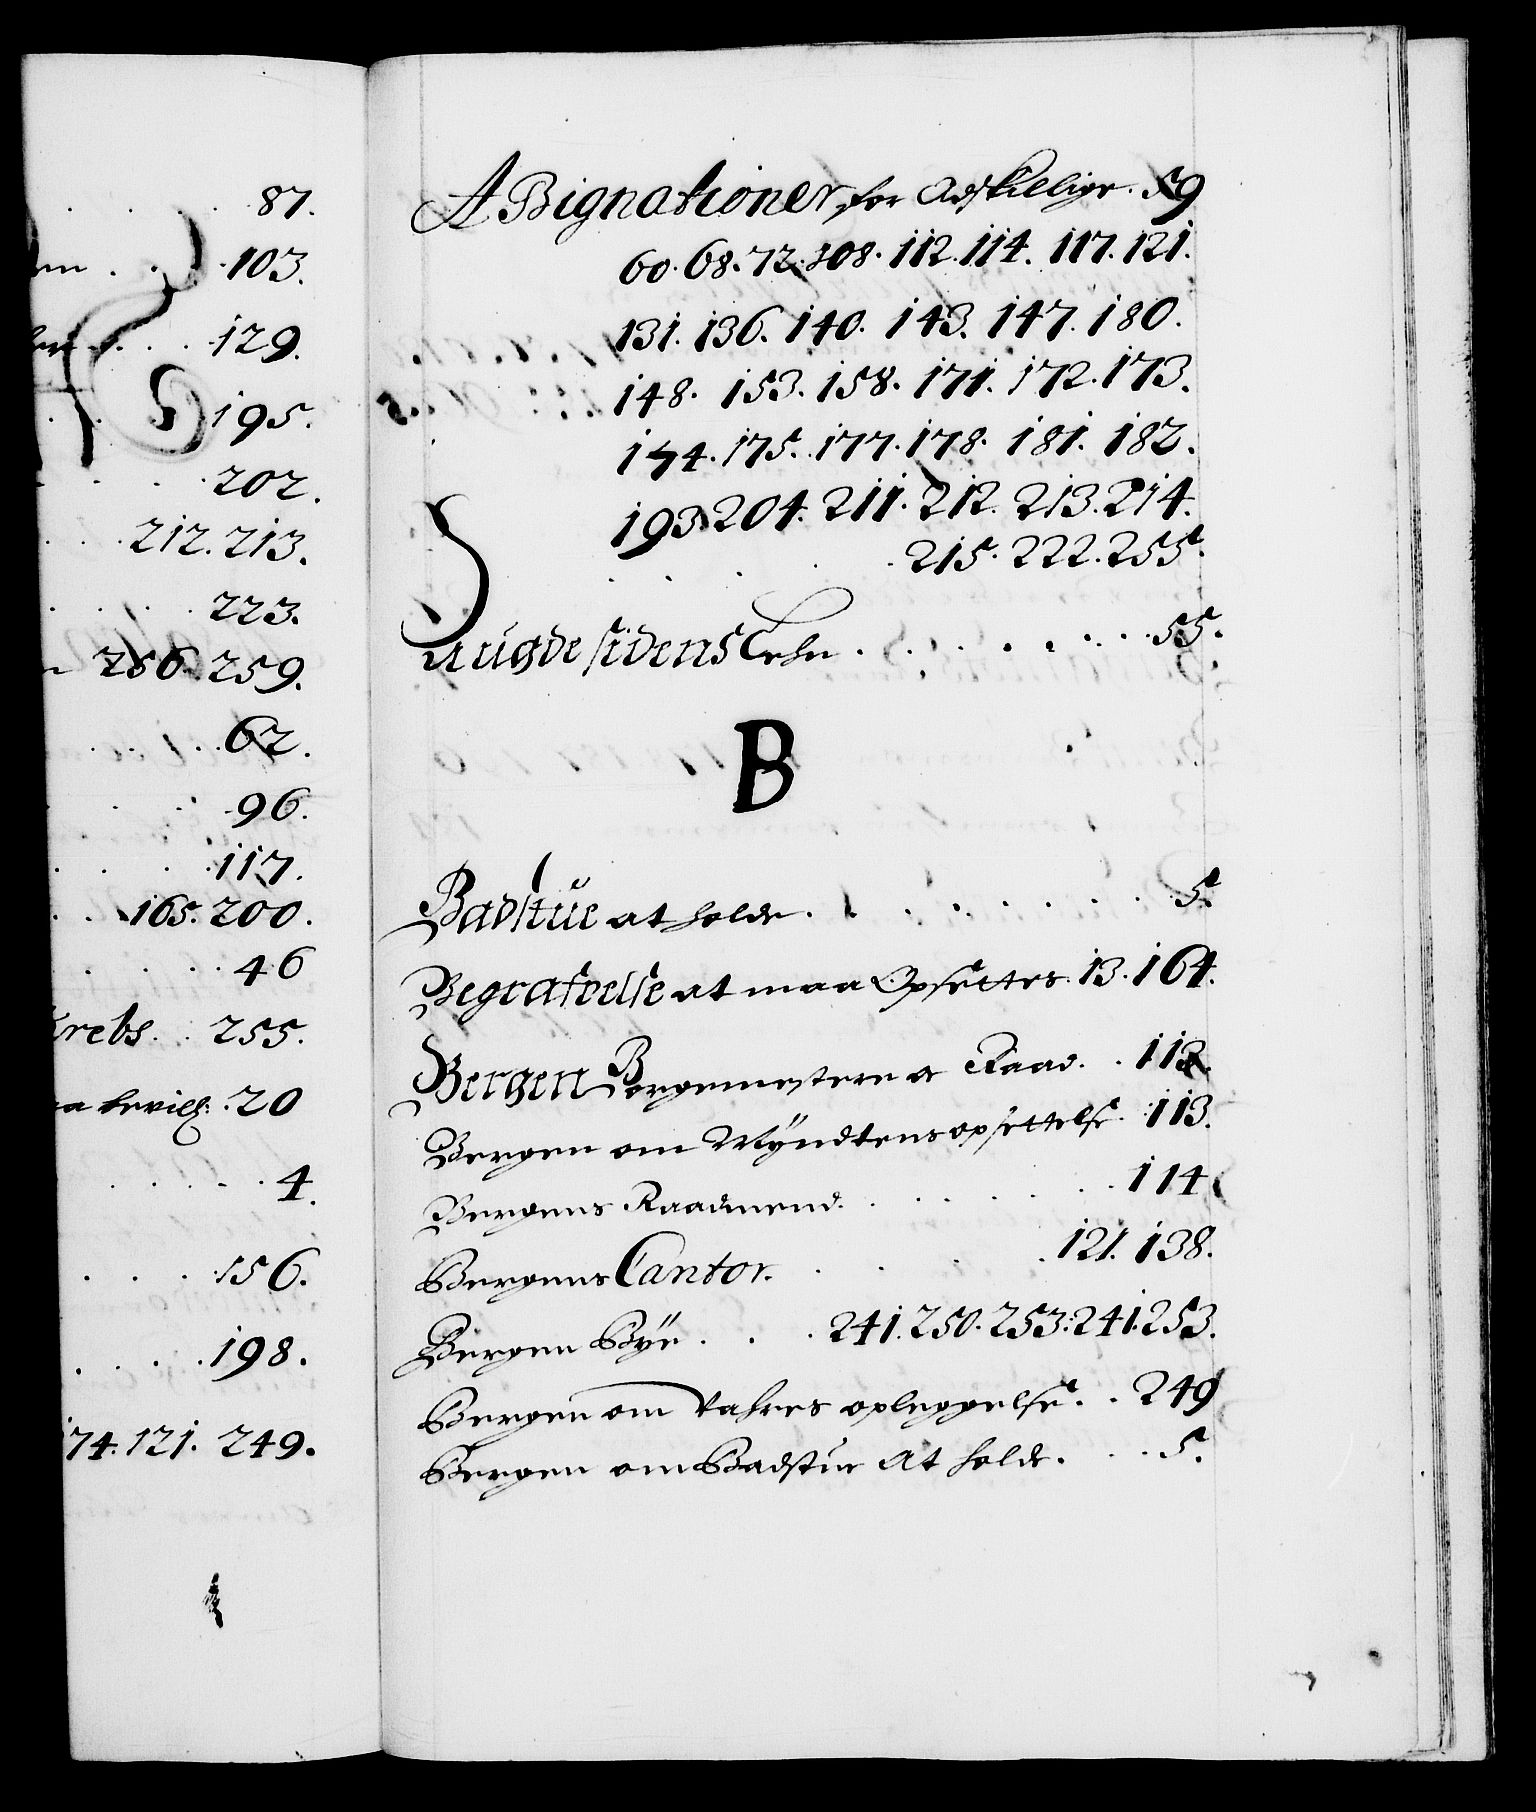 87.
103.
129.
195.
202.
212. 213.
223.
256. 259.
62.
96.
117.
165. 200.
46
Krebs. 255.
20
4.
156.
198.
174. 121. 249.
Aszignationer for Adskillige. 59
60. 68. 72. 108. 112. 114. 117. 121.
131. 136. 140. 143. 147. 180.
148. 153. 158. 171. 172. 173.
174. 175. 177. 178. 181. 182.
193. 204. 211. 212. 213. 214.
215. 222. 255.
Augdesidens Lehn . . . . . . . 55.
B
Badstue at holde . . . . . . . 5.
Begrafvelse at maa Opsettes. 13. 164.
Bergen Borgemestere oc Raad. . 112.
Bergen om Myndtens opsettelse. 113.
Bergens Raadmend. . . . . . 114
Bergens Cantor. . . . . 121. 138.
Bergen Bÿe . . . 241. 250. 253. 241. 253.
Bergen om Vahres opleggelse. . 249
Bergen om Badstue at holde. . . 5.